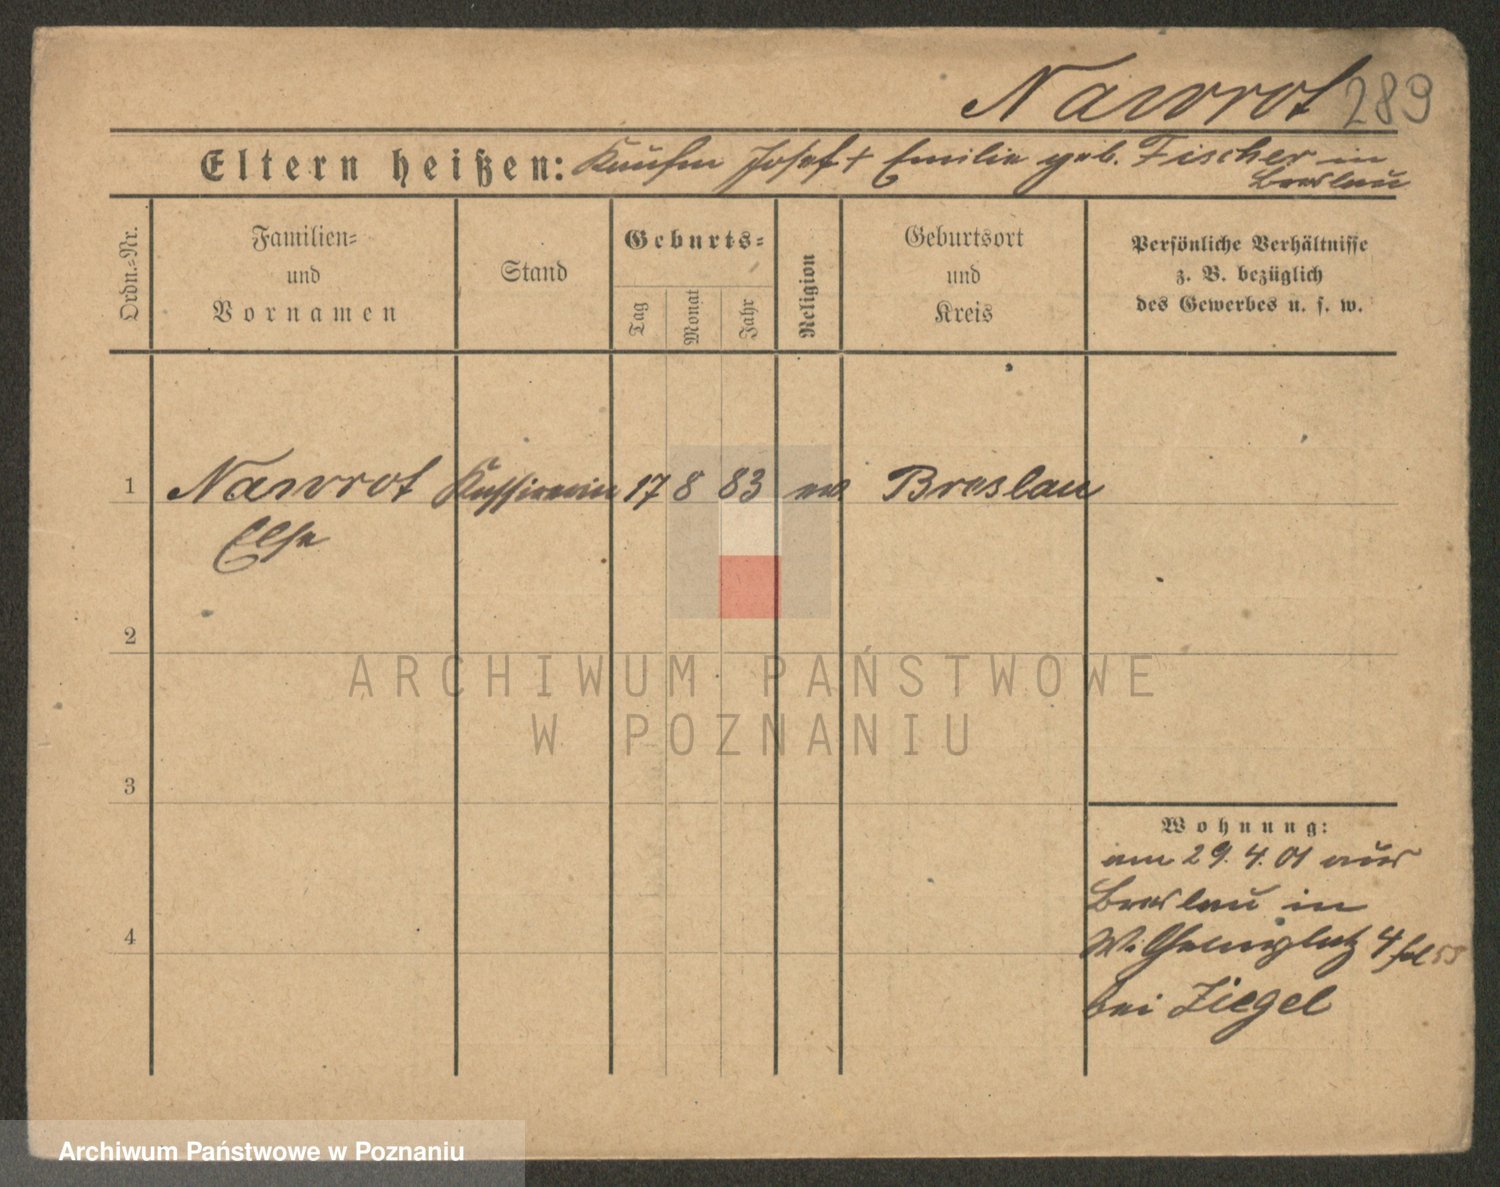 Nawrot 289
Eltern heißen: Kaufm Josef + Emilie geb. Fischer in
Breslau
Ordn.-Nr.
Familien-
und
Vornamen
Stand
Geburts-
Tag
Monat
Jahr
Religion
Geburtsort
und
Kreis
Persönliche Verhältnisse
z. B. bezüglich
des Gewerbes u. s. w.
1 Nawrot Kassirerin 17 8 83 ev Breslau
Else
2
3
4
Wohnung:
am 29. 4. 01 aus
Breslau in
Wilhelmplatz 4
bei Ziegel
ARCHIWUM PAŃSTWOWE
W POZNANIU
Archiwum Państwowe w Poznaniu